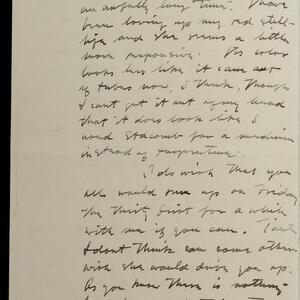 an awfully long time. I have
been loving up my red still-
life and she seems a little
more responsive. Its color
looks less like it came out
of tubes now, I think, though
I cant get it out of my head
that it does look like I
used Stacomb for a medium
instead of turpentine.
I do wish that you
all would run up on Friday
the thirty first for a while
with me if you can.
I dont think can come other-
wise she would drive you up.
As you know there is nothing